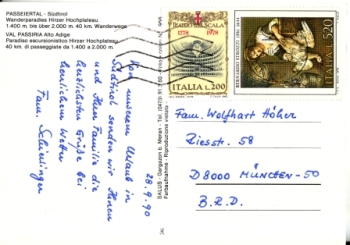 PASSEIERTAL - Südtirol
Wanderparadies Hirzer Hochplateau
1.400 m. bis über 2.000 m. 40 km. Wanderwege
VAL PASSIRIA Alto Adige
Paradiso escursionistico Hirzer Hochplateau
40 km. di passeggiate da 1.400 a 2.000 m.
Von unserem Urlaub in
Südtirol senden wir Ihnen
und Ihrer Familie die
herzlichsten Grüße bei
herrlichem Wetter
Fam.
28.9.90
TEATRO ALLA SCALA
1778 1978
ITALIA L.200
ITALIA
520
Fam. Wolfhart Höher
Ziesstr. 58
D 8000 MÜNCHEN-50
B.R.D.